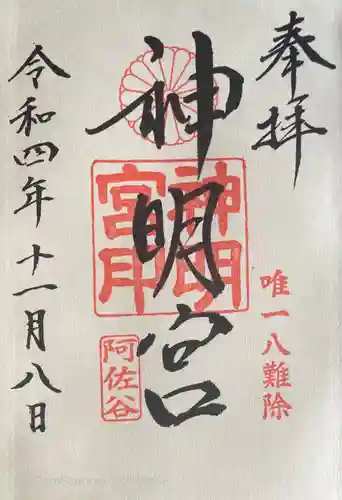 奉拝
唯一八難除
神明宮
神明
宮
阿佐谷
令和四年十一月八日